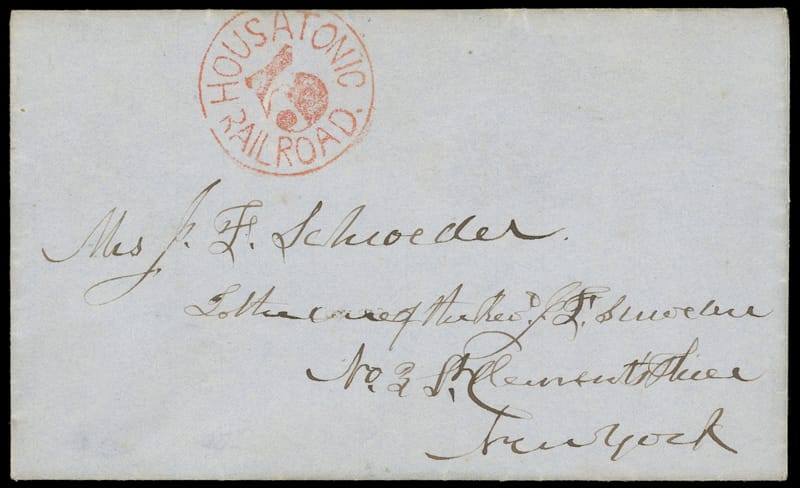 HOUSATONIC
RAILROAD.
Mrs J. F. Schroeder.
To the care of the Revd. J. F. Schroeder
No. 2 St. Clement's Place
New York